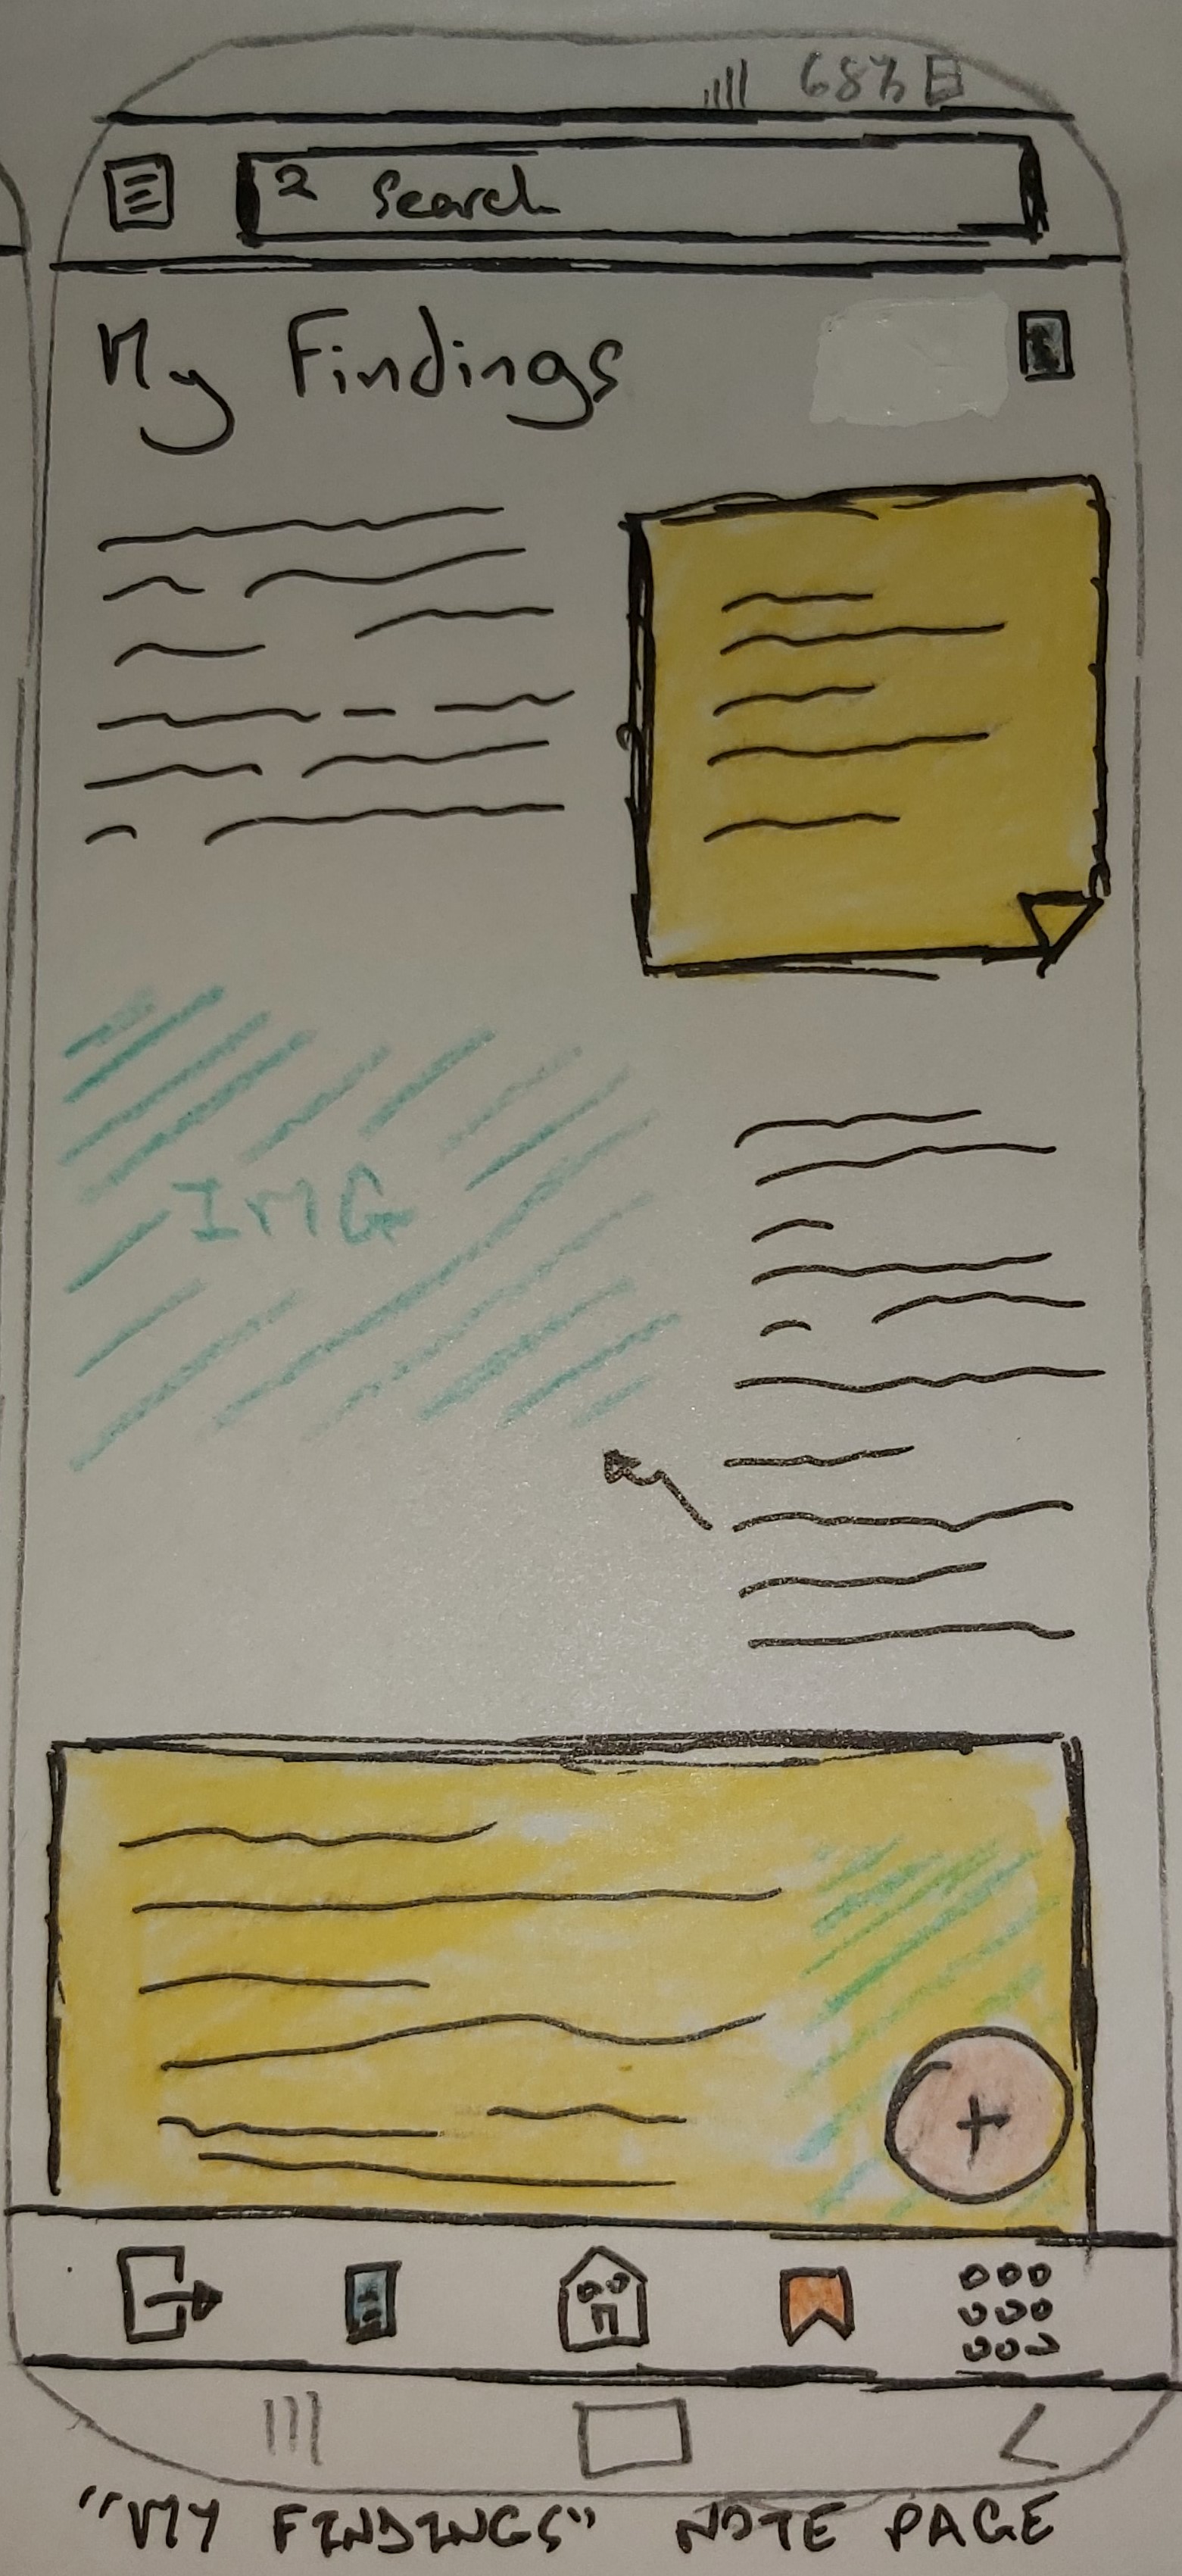 68%
Search
My Findings
IMG
+
"MY FINDINGS" NOTE PAGE